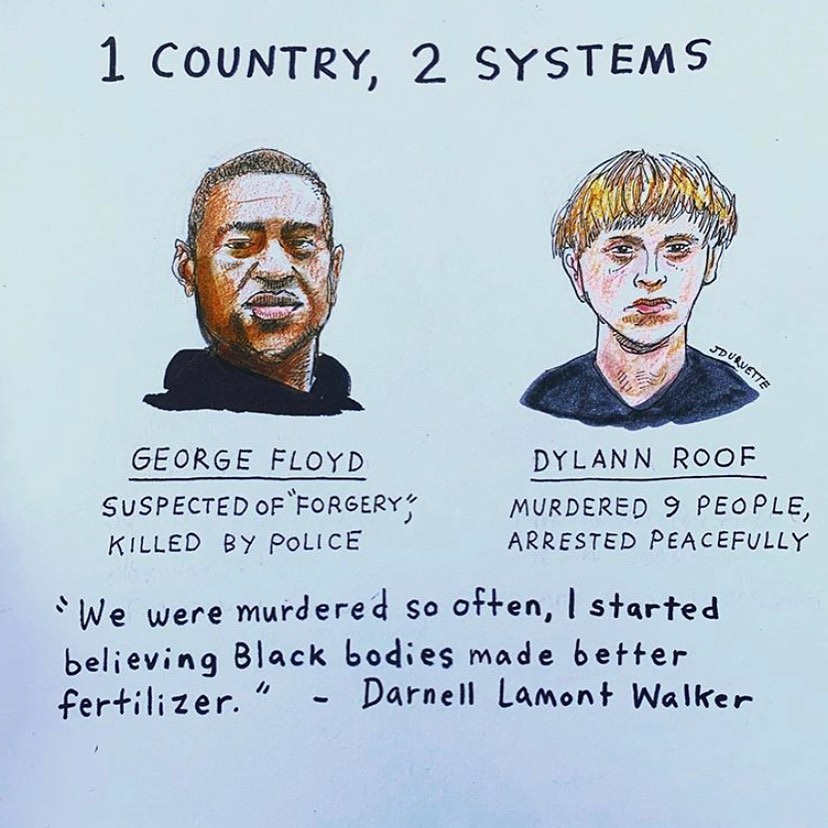 1 COUNTRY, 2 SYSTEMS
GEORGE FLOYD
SUSPECTED OF "FORGERY",
KILLED BY POLICE
JDURUETTE
DYLANN ROOF
MURDERED 9 PEOPLE,
ARRESTED PEACEFULLY
"We were murdered so often, I started
believing Black bodies made better
fertilizer." - Darnell Lamont Walker